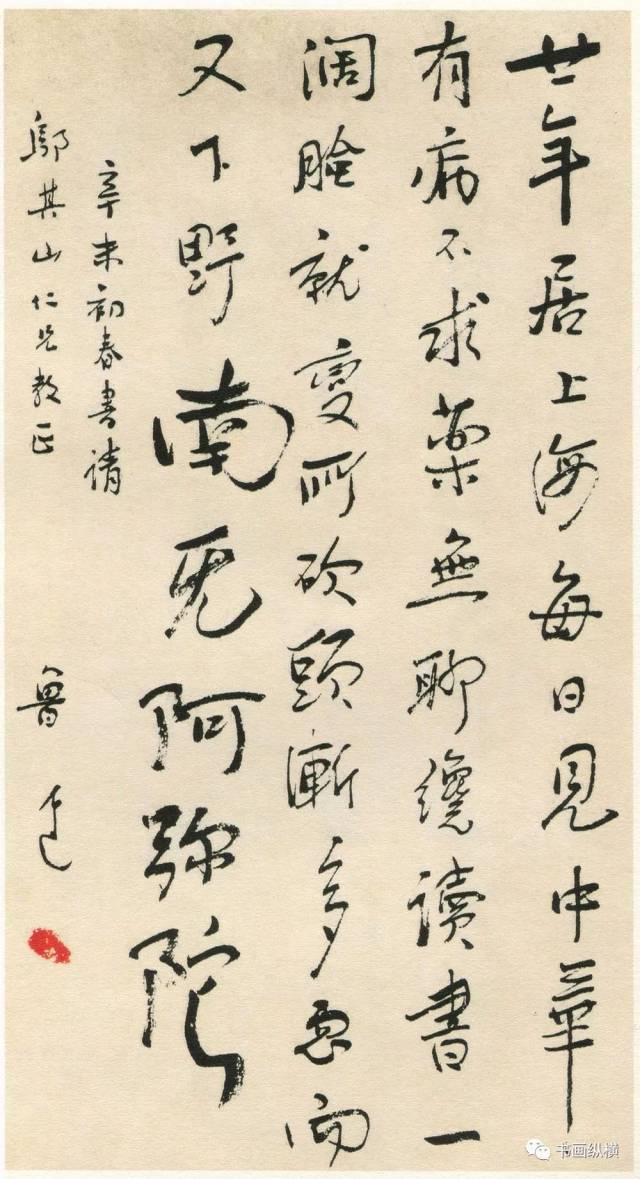 廿年居上海每日見中華
有病不求藥無聊纔读書一
阔臉就變所砍頭漸多忽而
又下野南无阿弥陀
辛未初春書請
鄔其山仁兄教正
魯迅
书画纵横